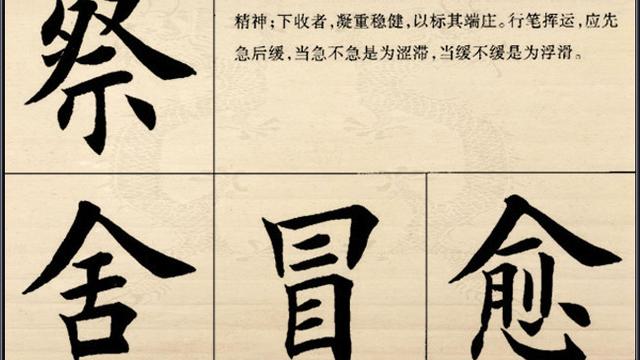 祭
精神；下收者，凝重稳健，以标其端庄。行笔挥运，应先
急后缓，当急不急是为涩滞，当缓不缓是为浮滑。
舍 冒 愈